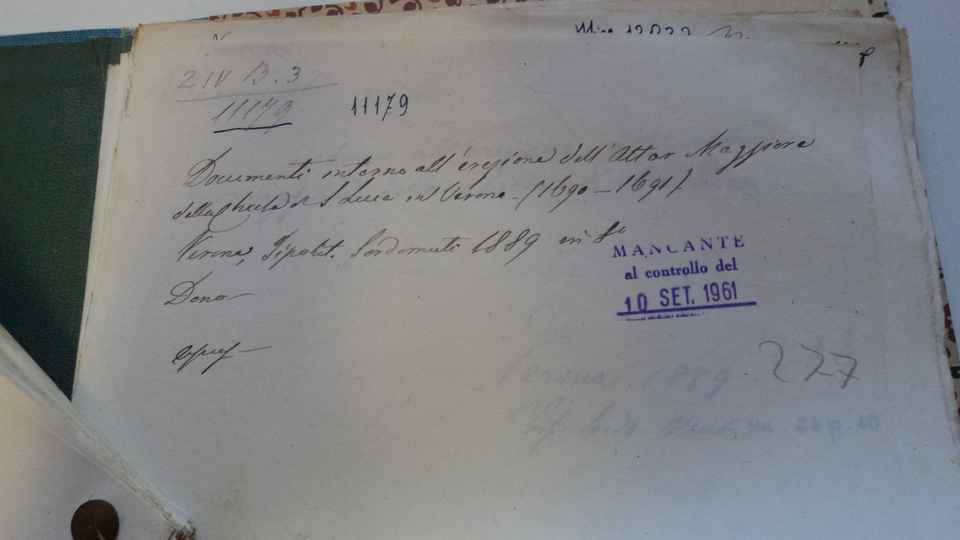 2 IV B. 3
11179 11179
Documenti intorno all'erezione dell'Altar Maggiore
della Chiesa di S Luca in Verona - (1690 - 1691)
Verona, Tipolit. Sordomuti 1889 in 8°
Dono
MANCANTE
al controllo del
10 SET. 1961
277
Verona 1889